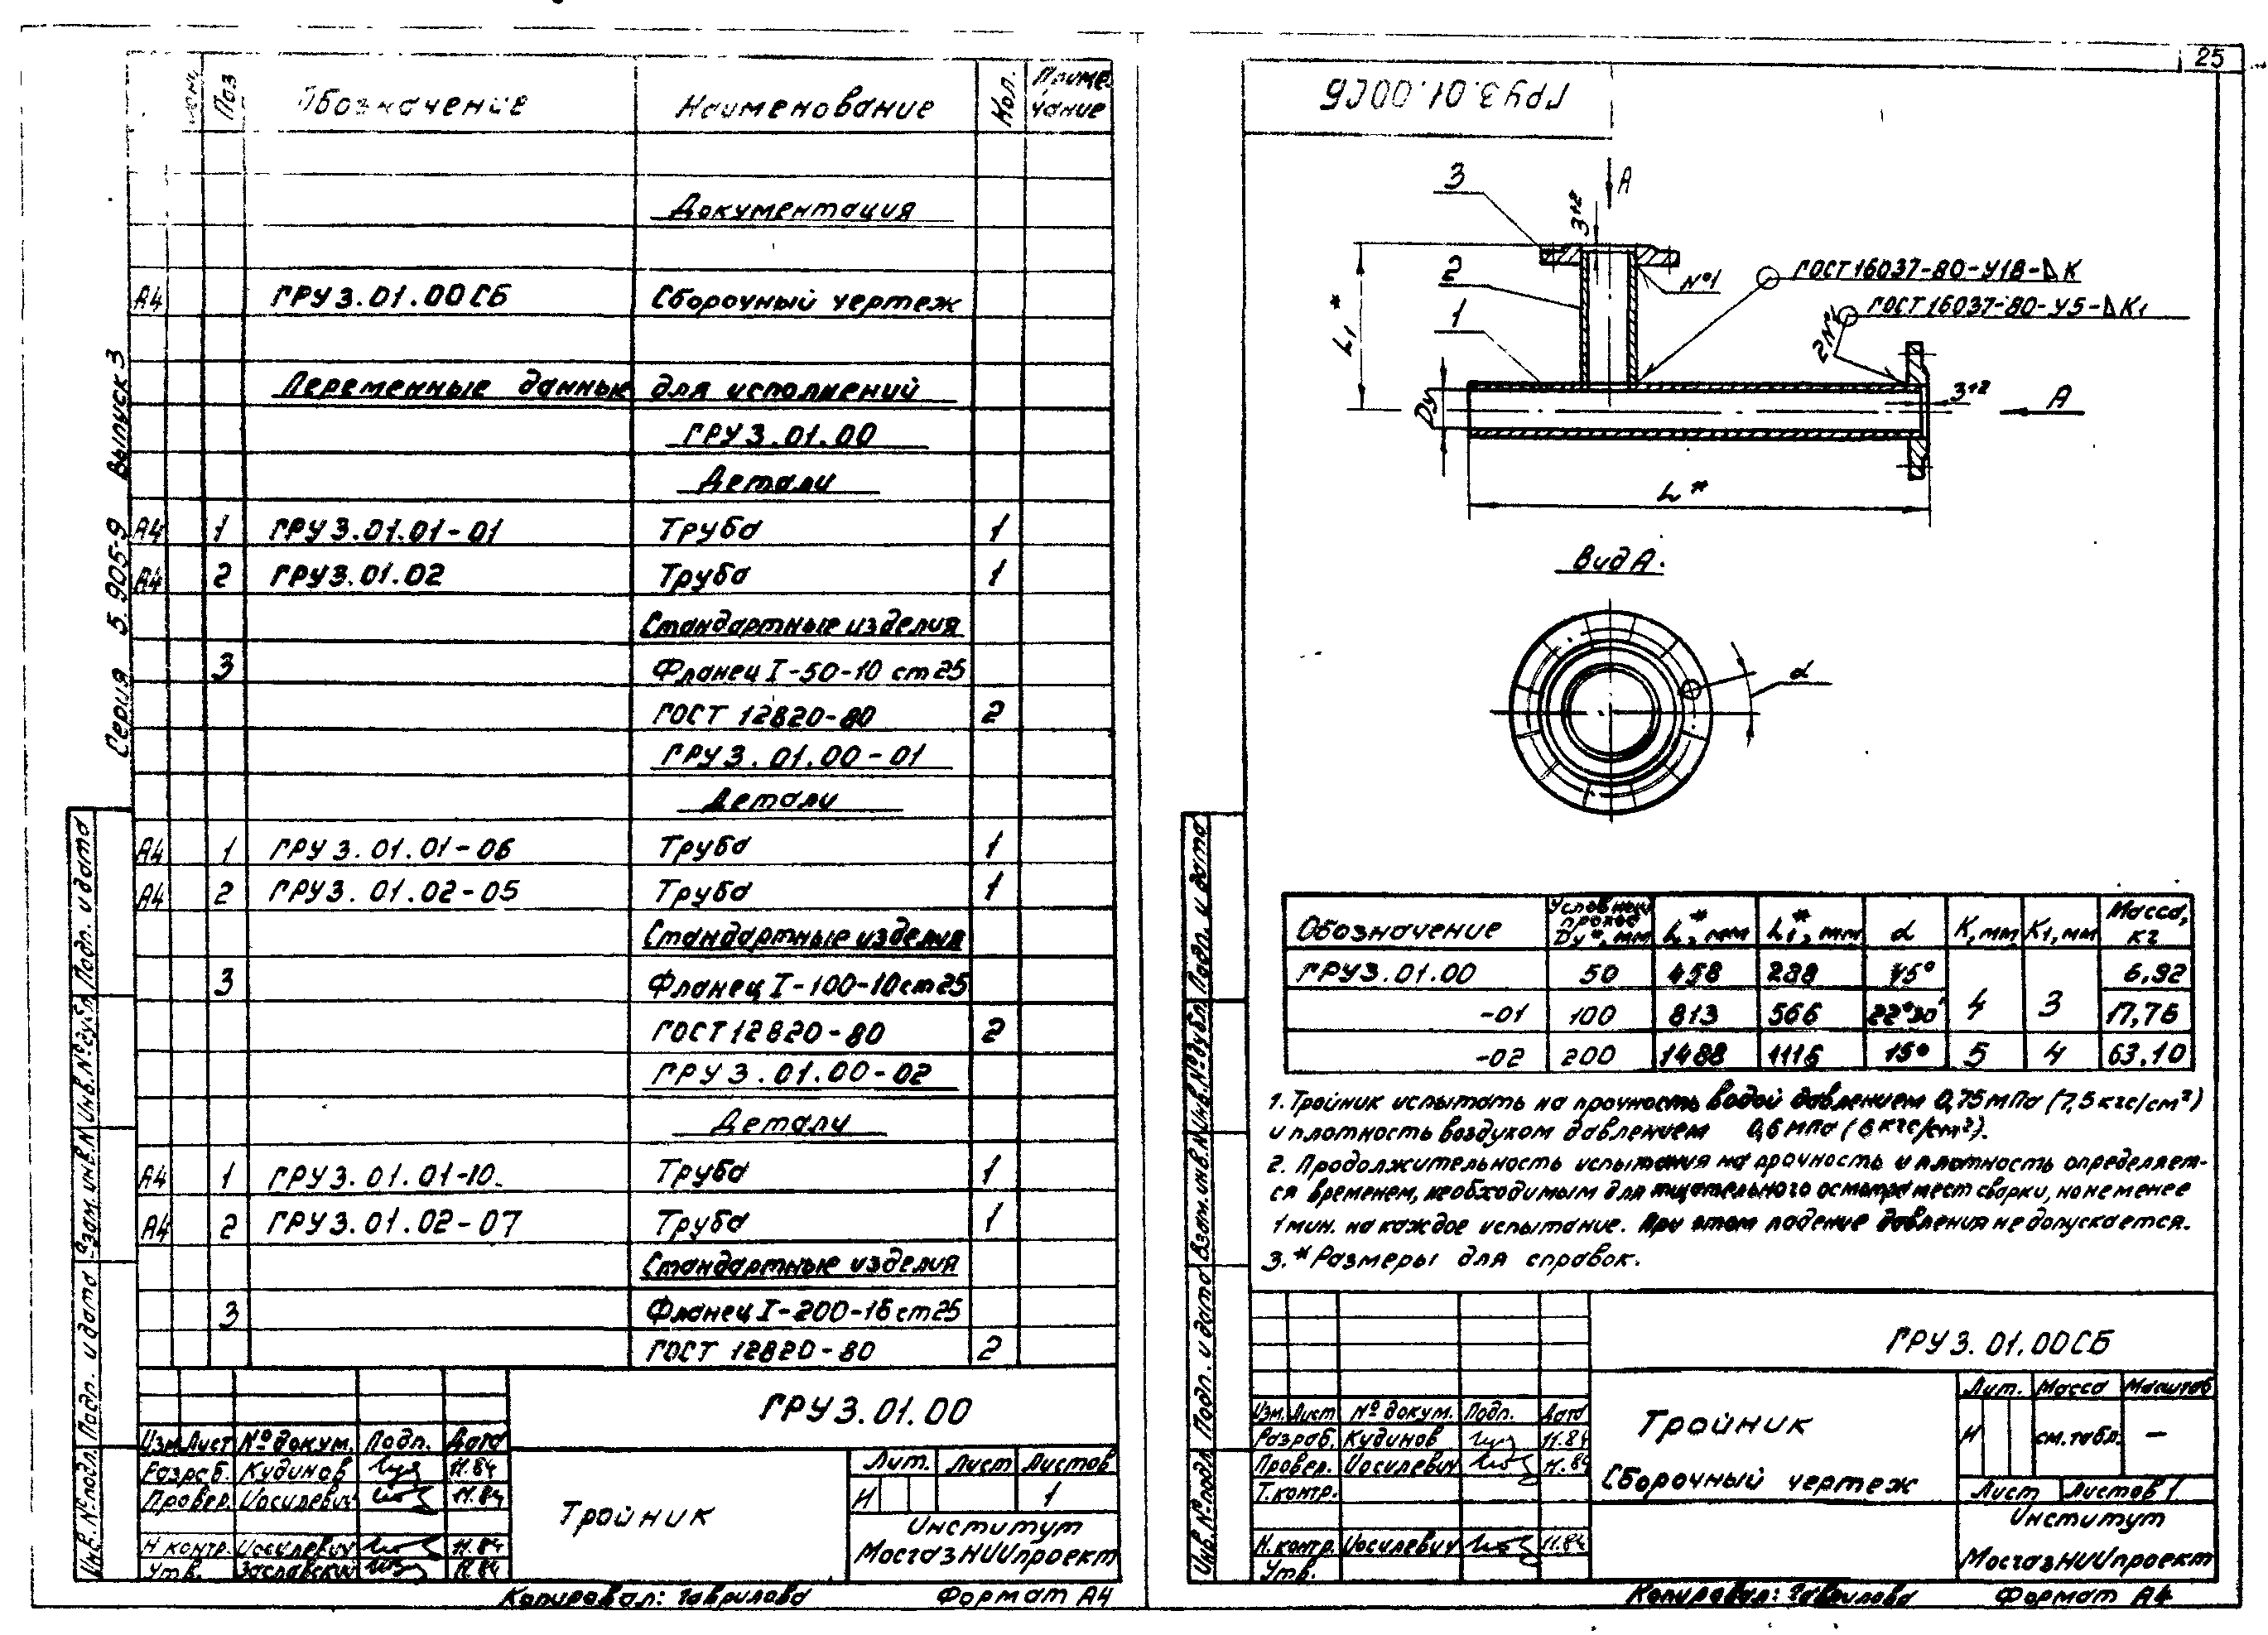 25
Серия 5.905-9 Выпуск 3
Поз Обозначение Наименование Кол. Приме чание
Документация
А4 ГРУ3.01.00СБ Сборочный чертеж
Переменные данные для исполнений
ГРУ3.01.00
Детали
А4 1 ГРУ3.01.01-01 Труба 1
А4 2 ГРУ3.01.02 Труба 1
Стандартные изделия
3 Фланец I-50-10 ст25
ГОСТ 12820-80 2
ГРУ3.01.00-01
Детали
А4 1 ГРУ3.01.01-06 Труба 1
А4 2 ГРУ3.01.02-05 Труба 1
Стандартные изделия
3 Фланец I-100-10 ст25
ГОСТ 12820-80 2
ГРУ3.01.00-02
Детали
А4 1 ГРУ3.01.01-10 Труба 1
А4 2 ГРУ3.01.02-07 Труба 1
Стандартные изделия
3 Фланец I-200-16 ст25
ГОСТ 12820-80 2
Инв.№подл. Подп. и дата Взам.инв.№ Инв.№дубл. Подп. и дата
ГРУ3.01.00
Изм. Лист №докум. Подп. Дата
Разраб. Кудинов 11.84
Провер. Иосилевич 11.84
Н контр. Иосилевич 11.84
Утв. Заславский 11.84
Тройник
Лит. Лист Листов
И 1
Институт
МосгазНИИпроект
Копировал: Гаврилова Формат А4
ГРУ3.01.00СБ
3
2
1
А
3+2
№1
ГОСТ 16037-80-У18-△К
2№1
ГОСТ 16037-80-У5-△К1
L1*
Dу
3+2
А
L*
Вид А.
α
Обозначение Условный проход Dу*, мм L*, мм L1*, мм α К, мм К1, мм Масса, кг
ГРУ3.01.00 50 458 288 45° 4 3 6,92
-01 100 813 566 22°30' 17,76
-02 200 1488 1116 15° 5 4 63,10
1. Тройник испытать на прочность водой давлением 0,75 мПа (7,5 кгс/см²)
и плотность воздухом давлением 0,6 мПа (6 кгс/см²).
2. Продолжительность испытания на прочность и плотность определяет-
ся временем, необходимым для тщательного осмотра мест сварки, но не менее
1 мин. на каждое испытание. При этом падение давления не допускается.
3.* Размеры для справок.
Инв.№подл. Подп. и дата Взам.инв.№ Инв.№дубл. Подп. и дата
ГРУ3.01.00СБ
Изм. Лист №докум. Подп. Дата
Разраб. Кудинов 11.84
Провер. Иосилевич 11.84
Т.контр.
Н.контр. Иосилевич 11.84
Утв.
Тройник
Сборочный чертеж
Лит. Масса Масштаб
И см.табл. —
Лист Листов 1
Институт
МосгазНИИпроект
Копировал: Гаврилова Формат А4